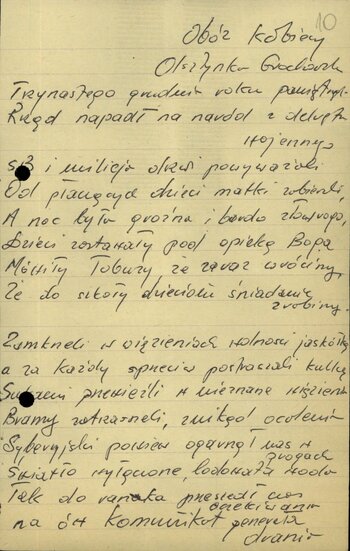 10
Obóz kobiecy
Olszynka Grochowska
Trzynastego grudnia roku pamiętnego
Rząd napadł na naród z dekretu
wojennego
SB i milicja drzwi powyważali
Od płaczących dzieci matki zabierali,
A noc była groźna i bardzo złowroga,
Dzieci zostawały pod opieką Boga
Mówiły Tobuzy, że zaraz wrócimy,
Że do szkoły dzieciom śniadanie
zrobimy.
Zamknęli w więzieniach wolności jaskółkę
a za każdy sprzeciw postraszali kulką
Sukami przewieźli w nieznane więzienia
Bramy zatrzasnęli, znikąd ocalenia
Syberyjski powiew ogarnął nas w
progach
Światło wyłączone, lodowata woda
Tak do ranka przesiedł nas
oczekiwanie
na ów komunikat generała
drania